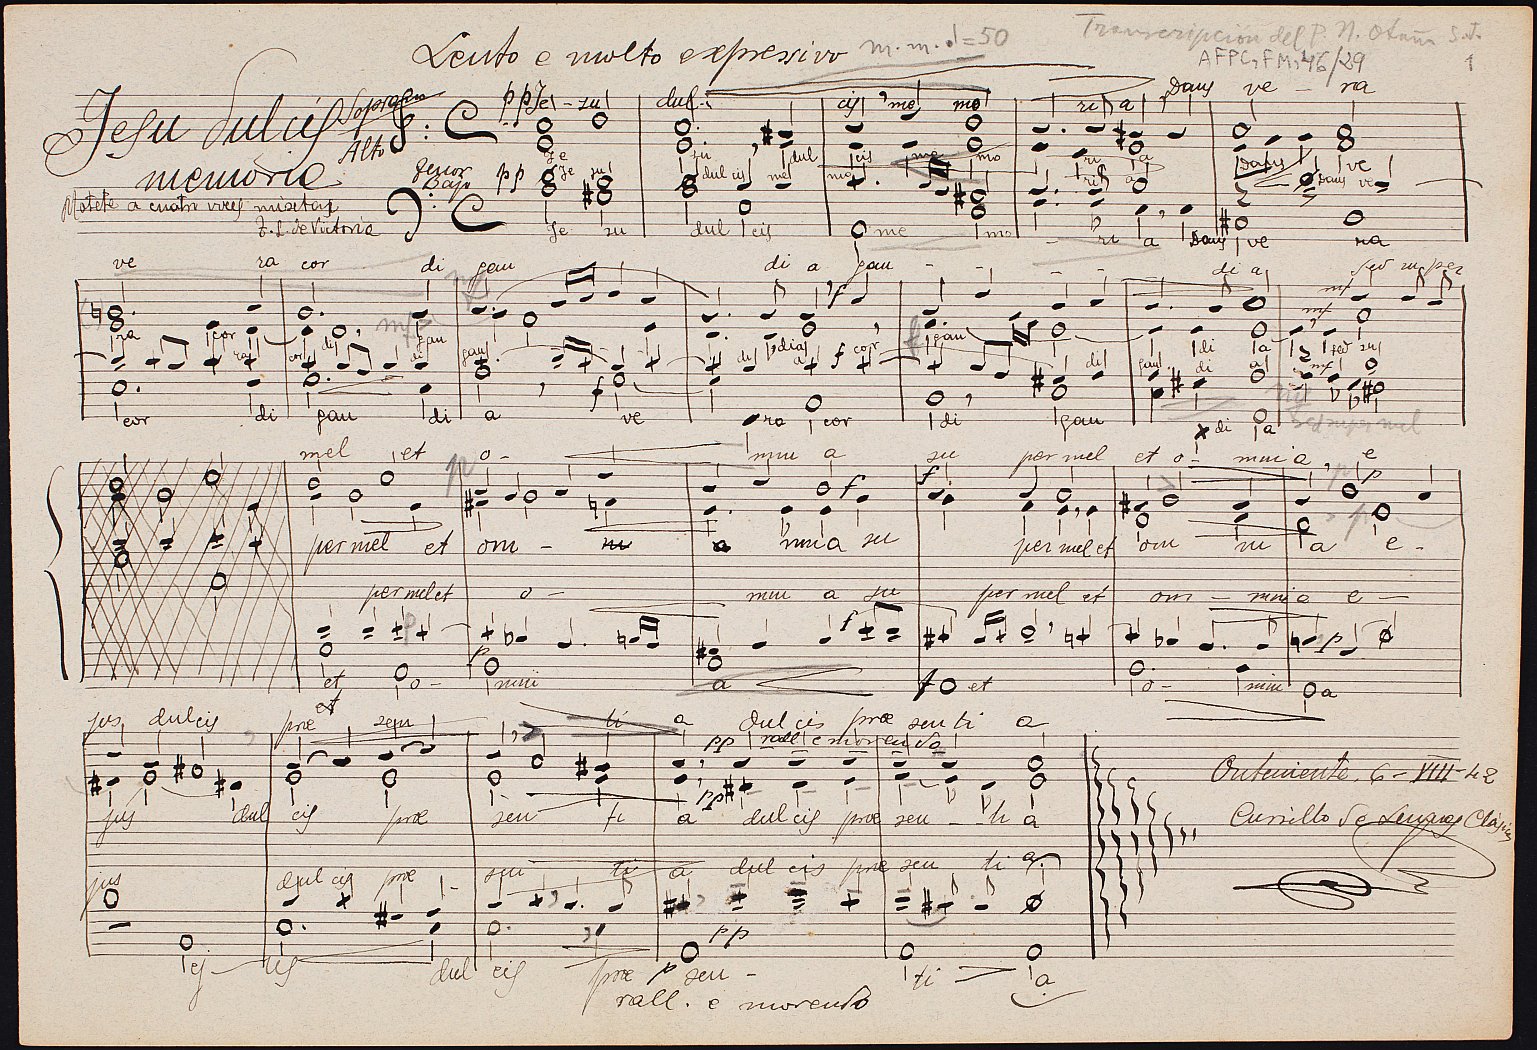 Lento e molto expresivo m.m. = 50 Transcripción del P. N. Otaño S.J.
AFPC, FM, 46/29 1
Jesu dulcis
memorie
Motete a cuatro voces mixtas
T. L. de Victoria
Soprano
Alto
Tenor
Bajo
pp Je - su dul - cis me mo ri a Dans ve - ra
Je su dul cis me mo ri a Dans ve
pp Je su dul cis me mo ri a Dans ve
Je su dul cis me mo - ri a Dans ve ra
ve ra cor di gau di a gau - - - - di a sed su per
mf mf
ra cor di gau dia f gau di a sed su
ra cor di gau di a f cor di gau di a mf
cor di gau di a f ve ra cor di gau di a
sed super mel
mel et o - mni a su per mel et o - mni a e
p f f p
per mel et om - ni a mnia su per mel et om ni a e -
per mel et o - mni a su per mel et om - mni a e -
p f p
et o - mni a f et o - mni a
et
jus dulcis præ sen ti a dul cis præ sen ti a
pp rall e morendo
jus dul cis præ sen ti a dul cis præ sen - ti a
pp
jus dul cis præ sen ti a dul cis præ sen ti a
pp
cis dul cis præ p sen - ti a
rall. e morendo
Onteniente, 6 - VIII - 42
Cursillo de